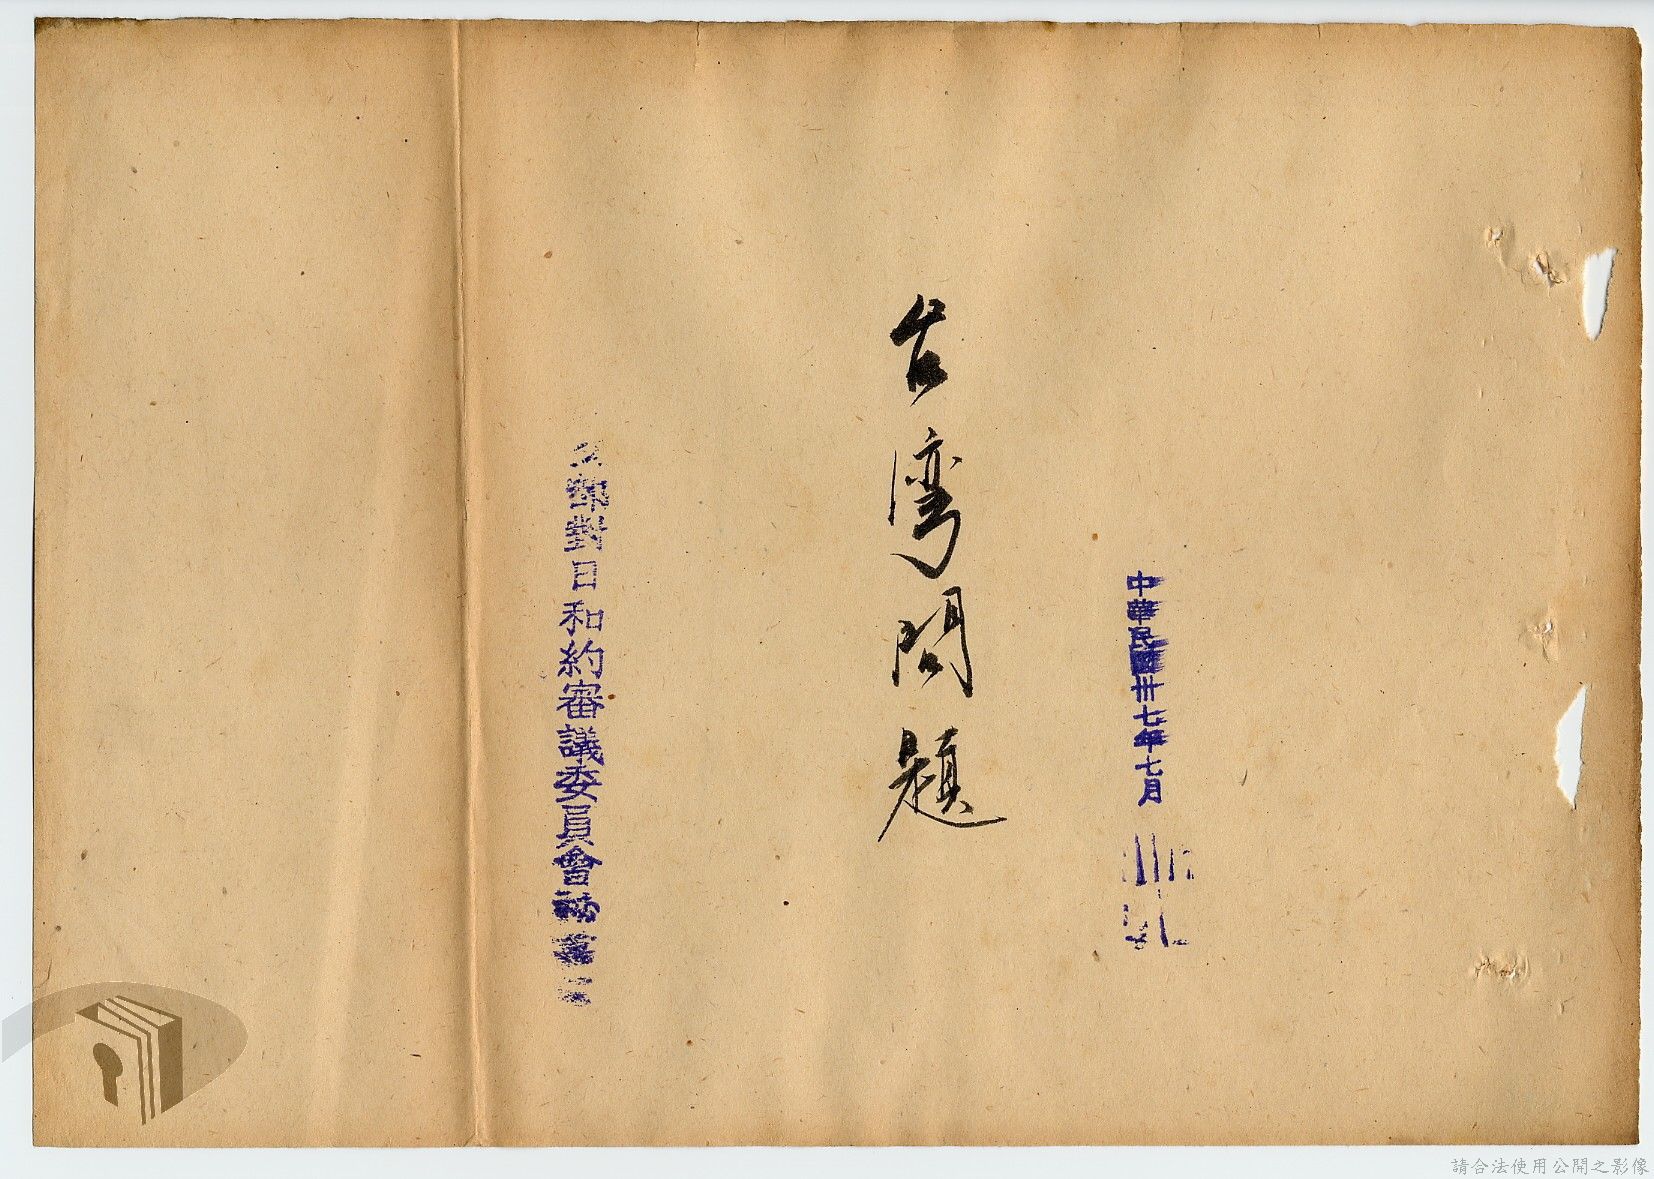 中華民國卅七年七月
台湾問題
部對日和約審議委員會
請合法使用公開之影像